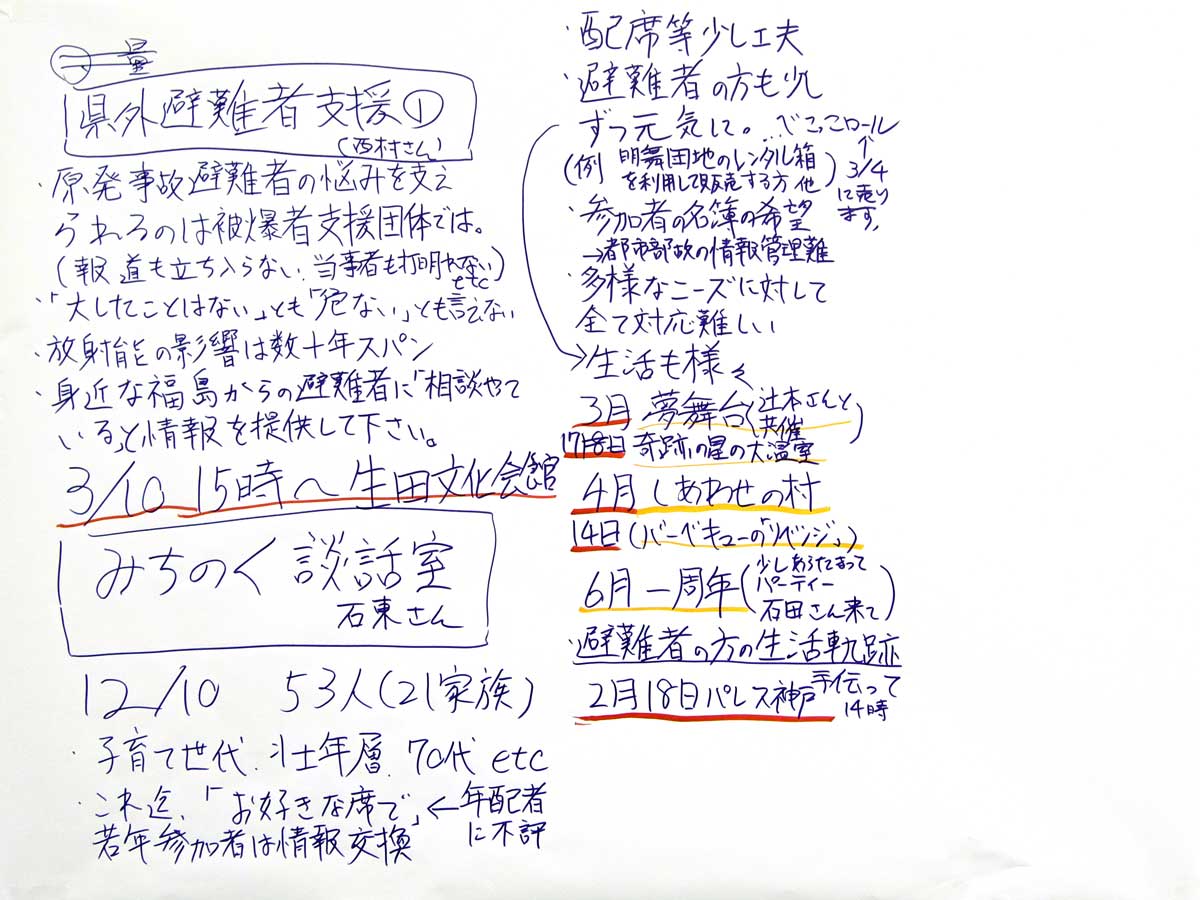 県外避難者支援①
(西村さん)
・原発事故避難者の悩みを支え
られるのは被爆者支援団体では。
(報道も立ち入らない、当事者も打明けない etc)
・「大したことはない」とも「危ない」とも言えない
・放射能の影響は数十年スパン
・身近な福島からの避難者に「相談やって
いる」と情報を提供して下さい。
3/10 15時〜生田文化会館
みちのく談話室
石東さん
12/10 53人(21家族)
・子育て世代、壮年層、70代 etc
・これ迄、「お好きな席で」←年配者
に不評
若年参加者は情報交換
・配席等少し工夫
・避難者の方も少し
ずつ元気に。…べこっこロール
↑
3/4
に売り
ます。
(例 明舞団地のレンタル箱
を利用して販売する方 他)
・参加者の名簿の希望
→都市部故の情報管理難
・多様なニーズに対して
全て対応難しい
→生活も様々
3月 夢舞台(辻本さんと
共催)
17月8日 奇跡の星の大温室
4月 しあわせの村
14日 (バーベキューの「リベンジ」)
6月 一周年(少しあらたまって
パーティー
石田さん来て)
・避難者の方の生活軌跡
2月18日パレス神戸 手伝って
14時